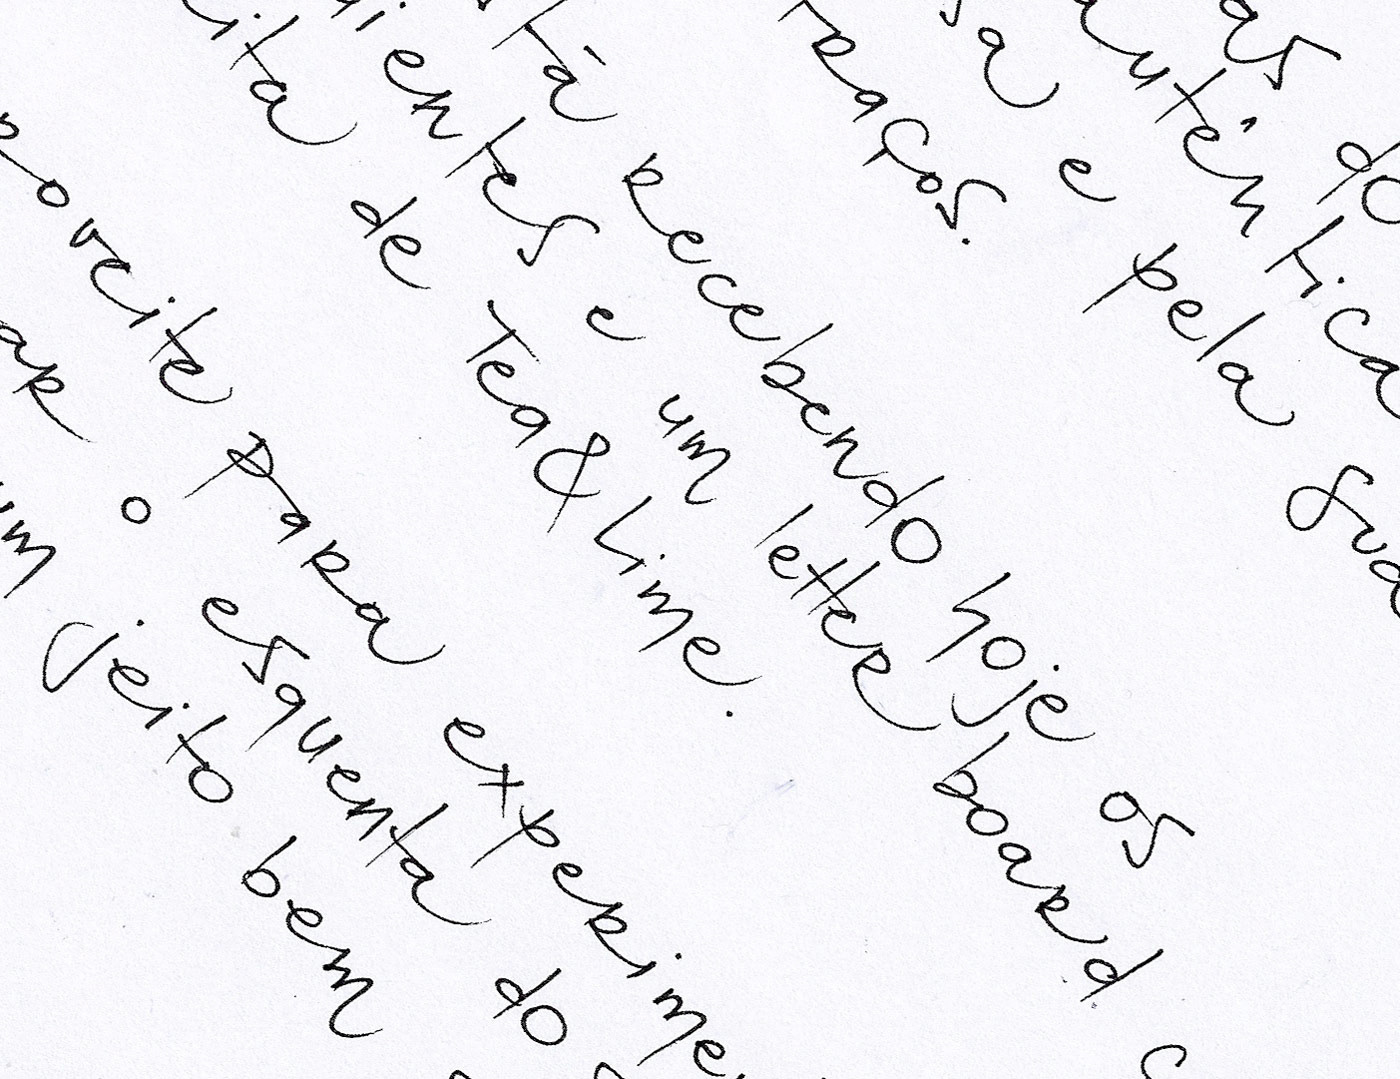 as do
autêntica
sa e pela
raços.
tá recebendo hoje os
ientes e um letter board
ita de Tea & Lime.
oveite para experime
ar o esquenta do
um jeito bem